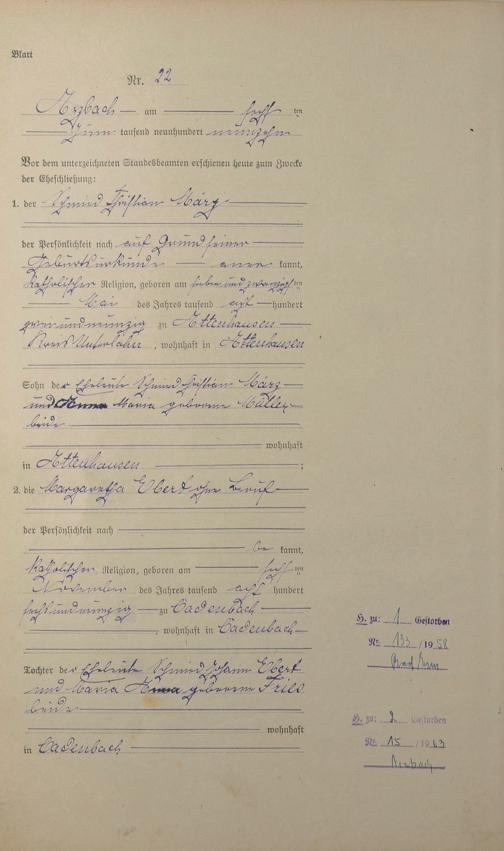 Blatt
Nr. 22
Arzbach am sechsten
Juni tausend neunhundert neunzehn
Vor dem unterzeichneten Standesbeamten erschienen heute zum Zwecke
der Eheschließung:
1. der Schmied Christian März
der Persönlichkeit nach auf Grund seiner
Geburtsurkunde aner kannt,
katholischer Religion, geboren am siebenundzwanzigsten
Mai des Jahres tausend acht hundert
zweiundneunzig zu Attenhausen
Kreis Unterlahn, wohnhaft in Attenhausen
Sohn der Eheleute Schmied Christian März
und Maria geborene
beide
wohnhaft
in Attenhausen;
2. die Margaretha Ebert ohne Beruf
der Persönlichkeit nach
be kannt,
katholischer Religion, geboren am sechsten
November des Jahres tausend acht hundert
sechsundneunzig zu Cadenbach
, wohnhaft in Cadenbach
Tochter der Eheleute Schmied Johann Ebert
und Maria Anna geborene Fries
beide
wohnhaft
in Cadenbach
H. zu: 1 Gestorben
Nr. 133 / 1958
H. zu: 2 Gestorben
Nr. 15 / 1963
Arzbach